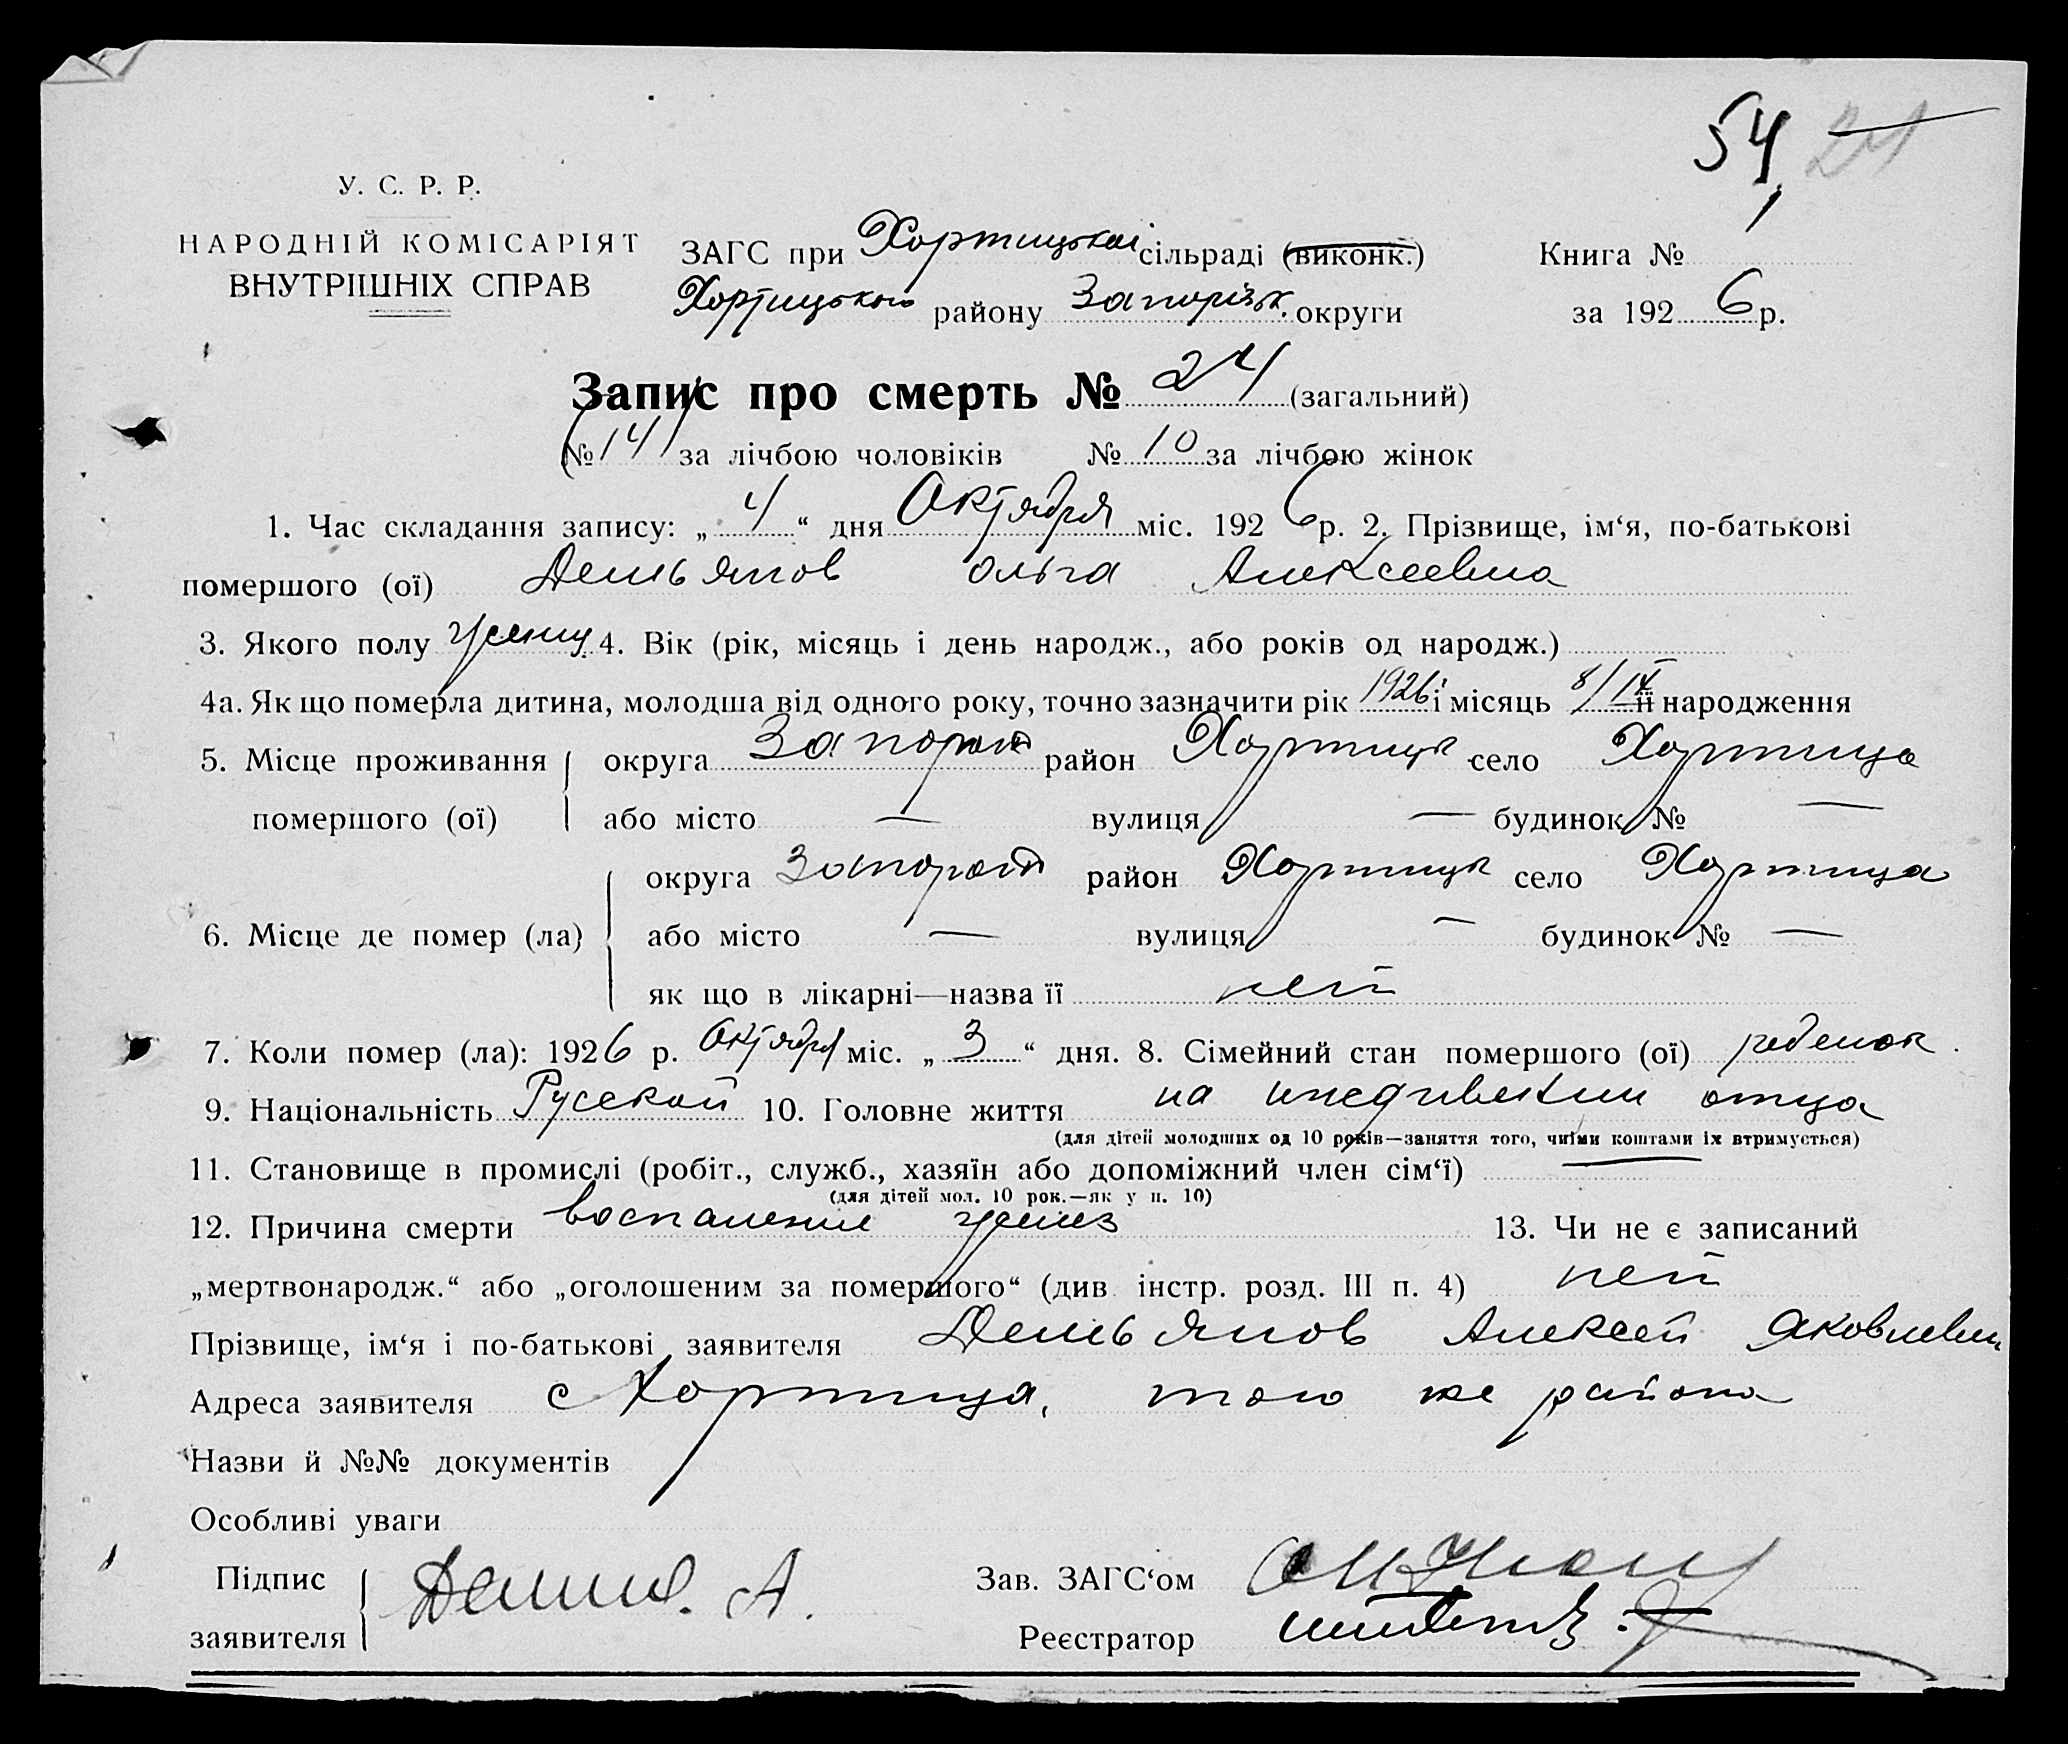 54, 21
У. С. Р. Р.
НАРОДНІЙ КОМІСАРІЯТ
ВНУТРІШНІХ СПРАВ
ЗАГС при Хортицькоі сільраді (виконк.)
Книга №
Хортицького району Запорізьк. округи
за 1926 р.
Запис про смерть № 24 (загальний)
(№ 14) за лічбою чоловіків № 10 за лічбою жінок
1. Час складання запису: „4“ дня Октября міс. 1926 р. 2. Прізвище, ім‘я, по-батькові
помершого (ої) Демьянов Ольга Алексеевна
3. Якого полу женщ. 4. Вік (рік, місяць і день народж., або років од народж.)
4а. Як що померла дитина, молодша від одного року, точно зазначити рік 1926 і місяць 8/IX її народження
5. Місце проживання округа Запорож район Хортицк село Хортица
помершого (ої) або місто — вулиця — будинок № —
округа Запорож район Хортицк село Хортица
6. Місце де помер (ла) або місто — вулиця — будинок № —
як що в лікарні—назва її нет
7. Коли помер (ла): 1926 р. Октября міс. „3“ дня. 8. Сімейний стан помершого (ої) ребенок
9. Національність Русской 10. Головне життя на иждивении отца
(для дітей молодших од 10 років—заняття того, чиїми коштами їх втримується)
11. Становище в промислі (робіт., служб., хазяїн або допоміжний член сім‘ї) —
(для дітей мол. 10 рок.—як у п. 10)
12. Причина смерти воспаление желез 13. Чи не є записаний
„мертвонародж.“ або „оголошеним за помершого“ (див. інстр. розд. III п. 4) нет
Прізвище, ім‘я і по-батькові заявителя Демьянов Алексей Яковлевич
Адреса заявителя с Хортица, того же района
Назви й №№ документів
Особливі уваги
Підпис
заявителя
А.
Зав. ЗАГС‘ом
Реєстратор